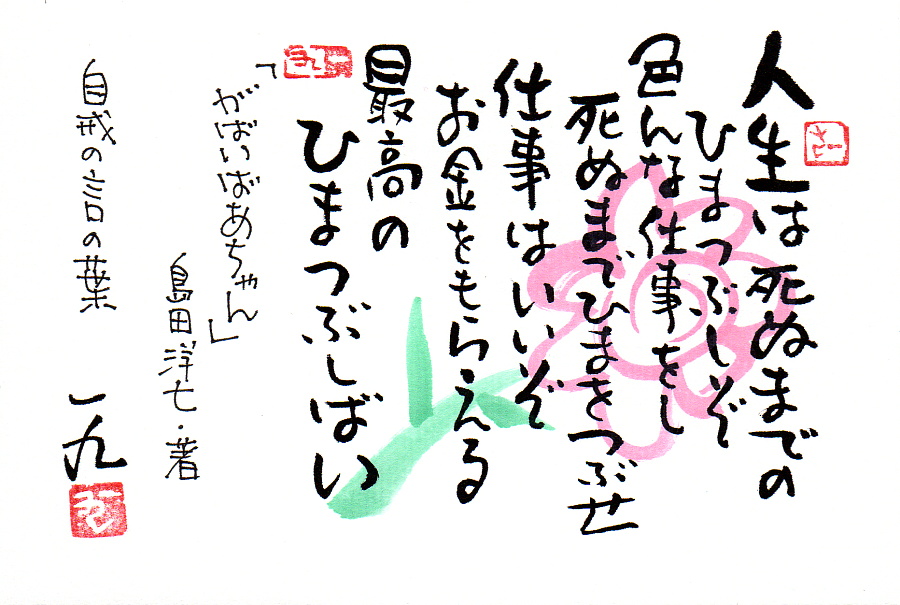 人生は死ぬまでの
ひまつぶしぞ
色んな仕事をし
死ぬまでひまをつぶせ
仕事はいいぞ
お金をもらえる
最高の
ひまつぶしばい
「がばいばあちゃん」
島田洋七・著
自戒の言の葉
一九